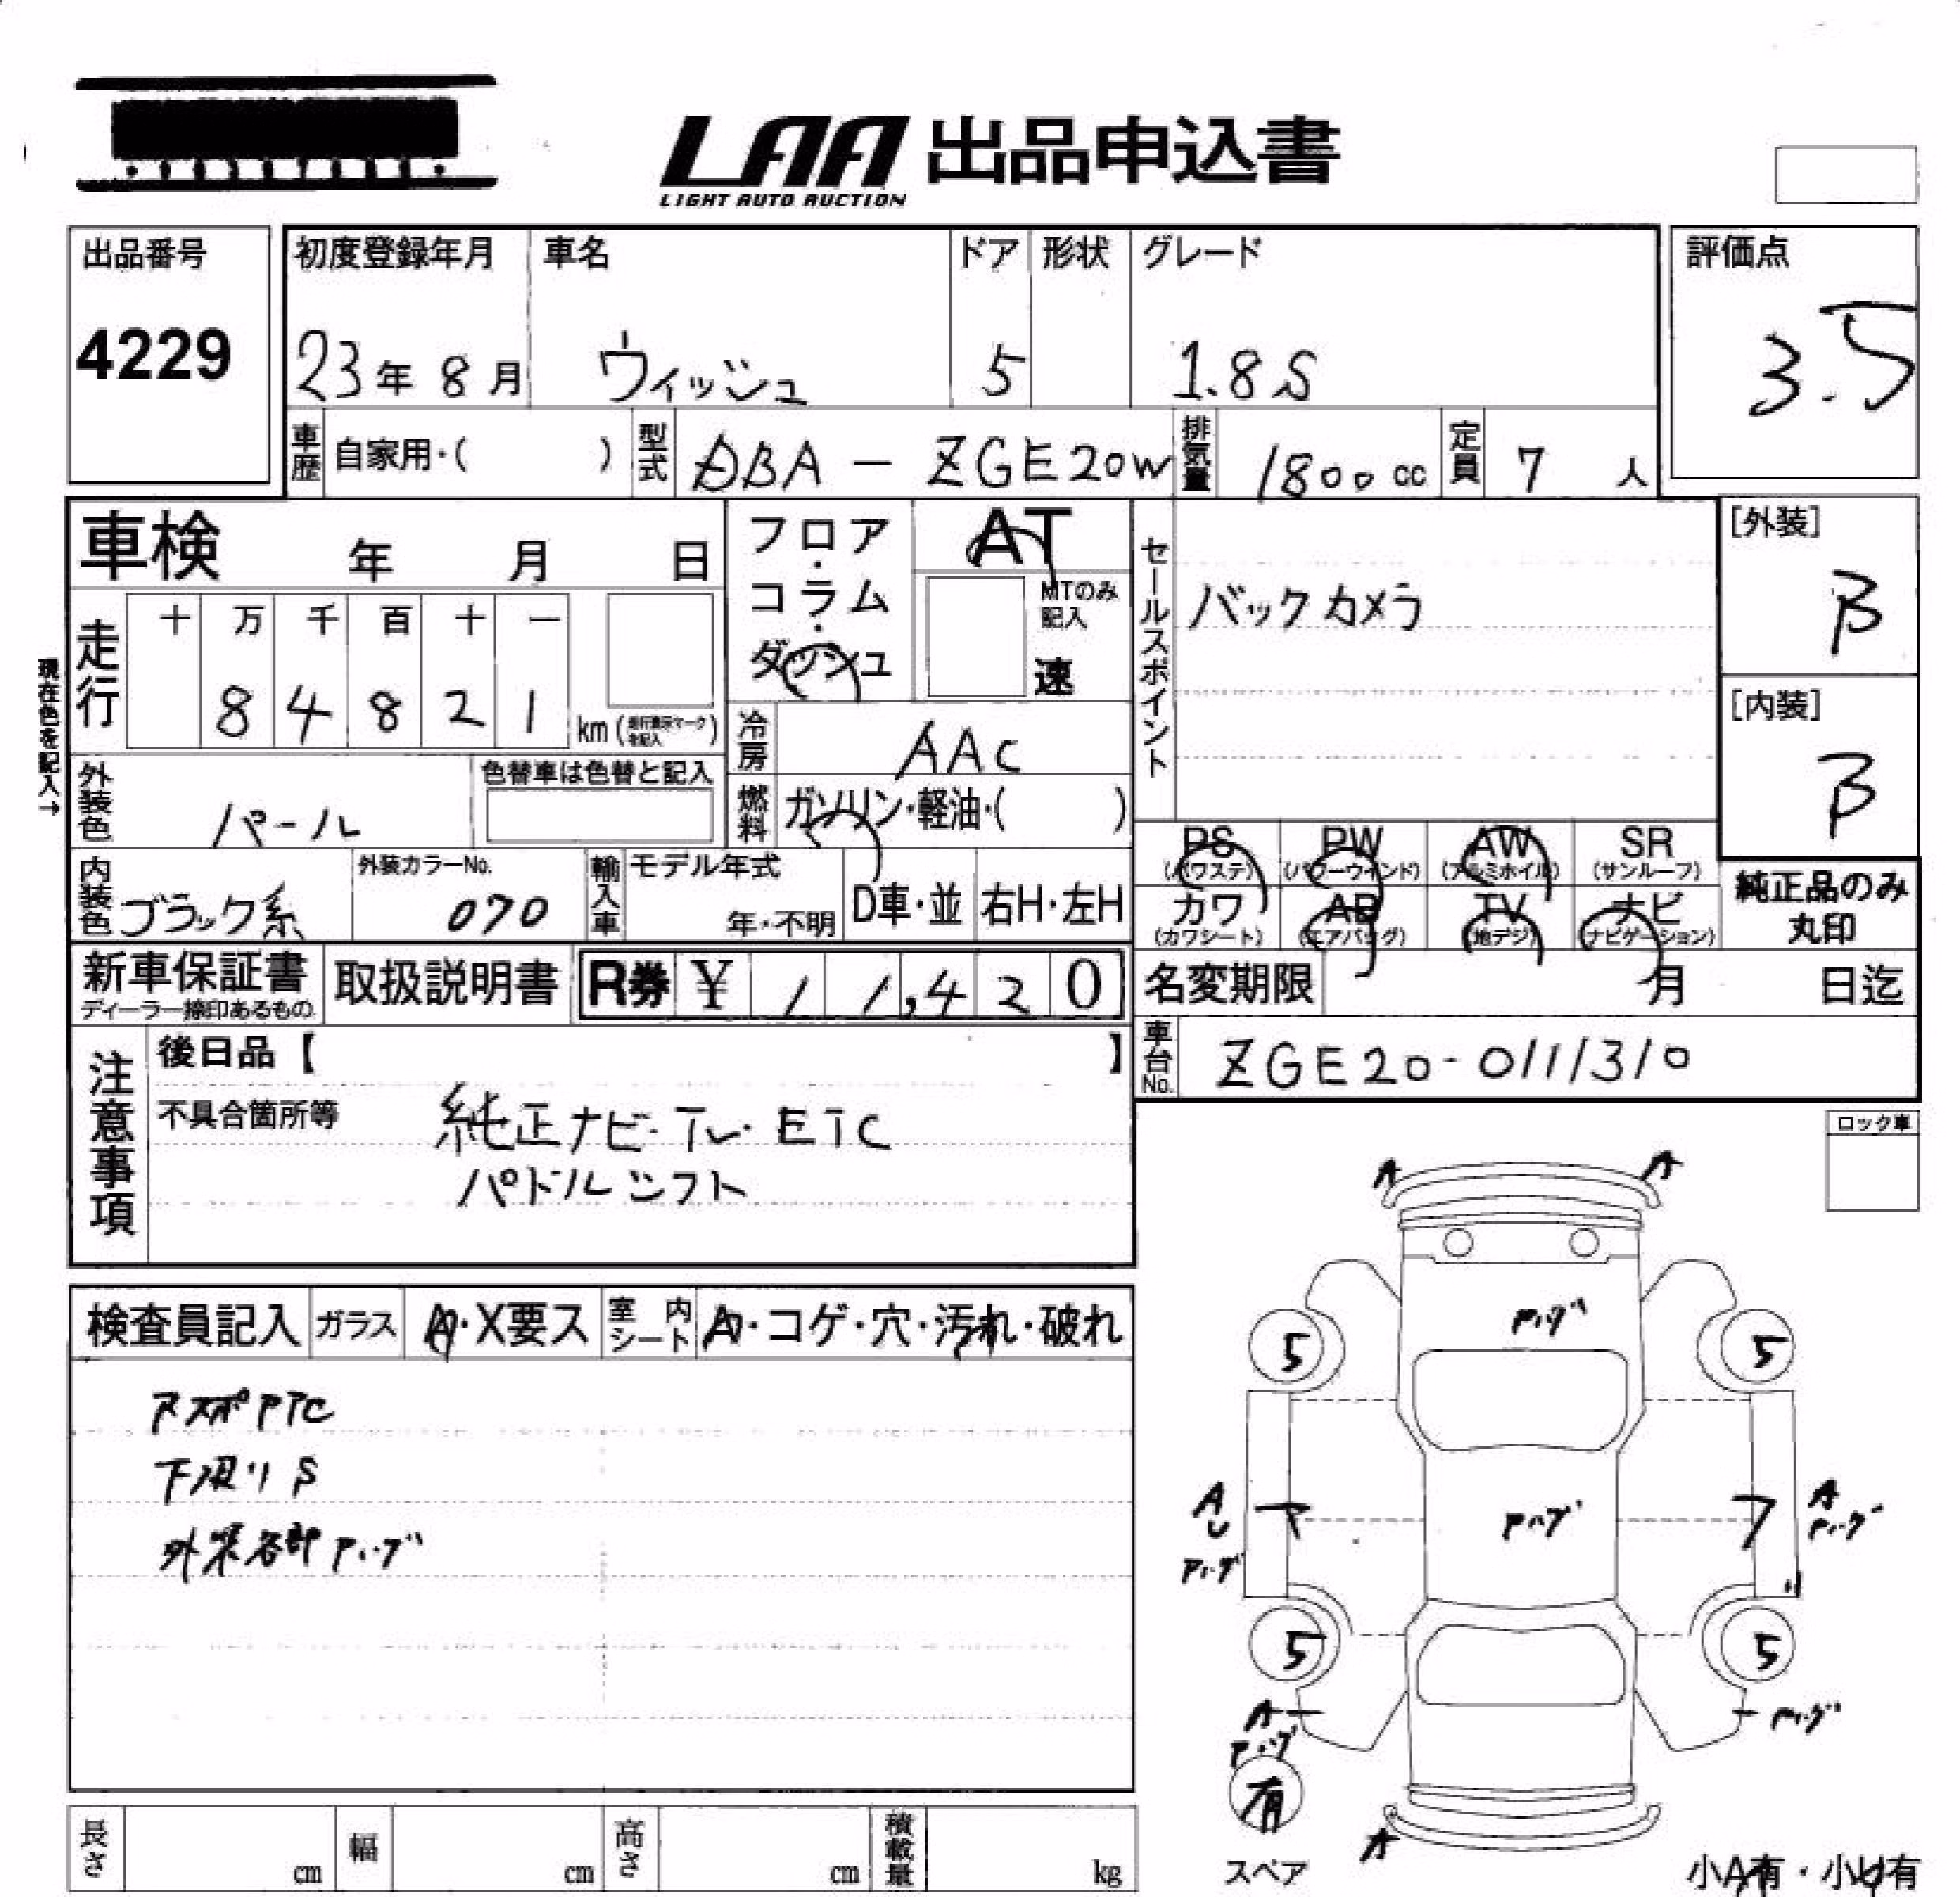 LAA 出品申込書
LIGHT AUTO AUCTION
出品番号
4229
初度登録年月 車名 ドア 形状 グレード
23年 8月 ウィッシュ 5 1.8S
評価点
3.5
車歴 自家用・( ) 型式 DBA - ZGE20W 排気量 1800cc 定員 7人
車検 年 月 日
フロア・コラム・ダッシュ
AT
MTのみ記入
速
セールスポイント
バックカメラ
[外装]
B
[内装]
B
現在色を記入→
走行 十 万 千 百 十 一
8 4 8 2 1 km
冷房 AAC
外装色 パール
色替車は色替と記入
燃料 ガソリン・軽油・( )
内装色 ブラック系
外装カラーNo.
070
輸入車 モデル年式
年・不明
D車・並 右H・左H
PS (パワステ) PW (パワーウインド) AW (アルミホイル) SR (サンルーフ)
カワ (カワシート) AB (エアバッグ) TV (地デジ) ナビ (ナビゲーション)
純正品のみ
丸印
新車保証書
ディーラー捺印あるもの
取扱説明書
R券 ¥ 11,420
名変期限 月 日迄
車台No. ZGE20-0111310
注意事項
後日品【 】
不具合箇所等
純正ナビ・TV・ETC
パドルシフト
ロック車
検査員記入 ガラス A・X要ス 室内シート A・コゲ・穴・汚れ・破れ
下廻りS
外装各部
A A
5 5
A
U
A
5 5
A
有
スペア
A
小A有・小U有
長さ cm 幅 cm 高さ cm 積載量 kg